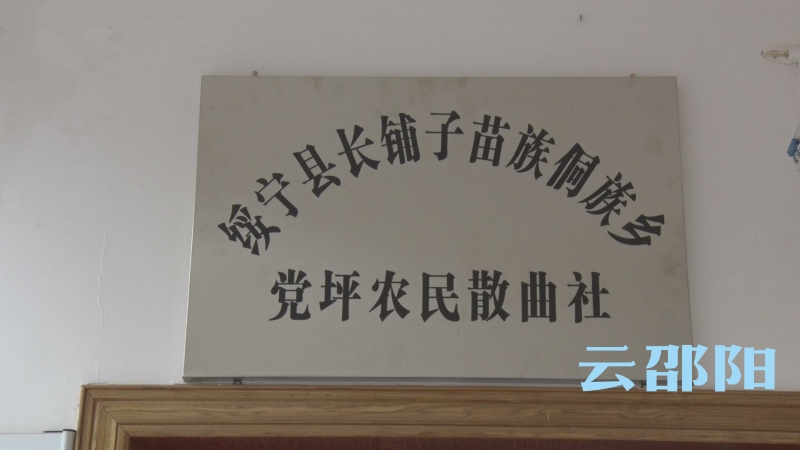 绥宁县长铺子苗族侗族乡
党坪农民散曲社
云邵阳